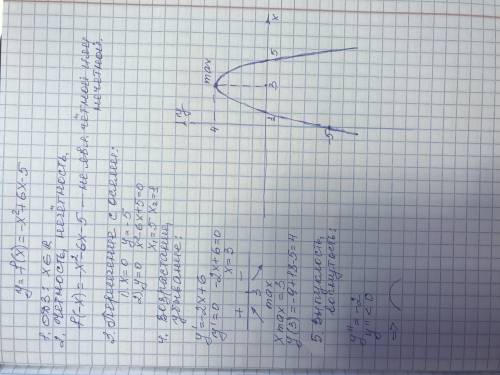 y = f(x) = -x²+6x-5
1. ОДЗ: x∈R
2. чётность, нечётность
f(-x) = -x²-6x-5 — не явл. чётной или
нечетной.
3. Пересечение с осями:
1) x=0 y=-5
2) y=0 x²-6x+5=0
x₁=5 x₂=1
4. Возрастание,
убывание:
y'=-2x+6
y'=0 -2x+6=0
x=3
+ 3 -
max
x max = 3
y(3)=-9+18-5=4
5 Выпуклость,
вогнутость:
y''=-2
y''<0
=>
y
4
max
1
3
5
x
-5